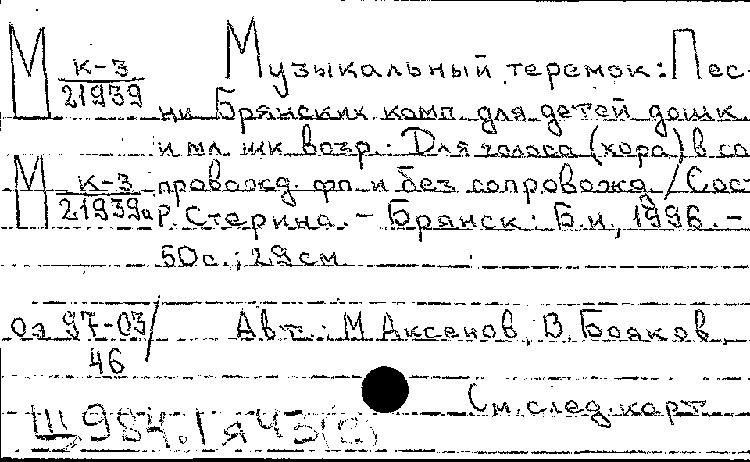 М к-3 Музыкальный теремок: Пес-
21939 ни Брянских комп. для детей дошк.
и мл. шк. возр.: Для голоса (хора) в со
М к-3 провожд. фп. и без сопровожд. / Сост.
21939а Р. Стерина. – Брянск: Б.и., 1996. –
50с.; 29см
оз 97-03/ Авт.: М. Аксенов, В. Бояков,
46
См. след. карт
Щ984.1я43(2)